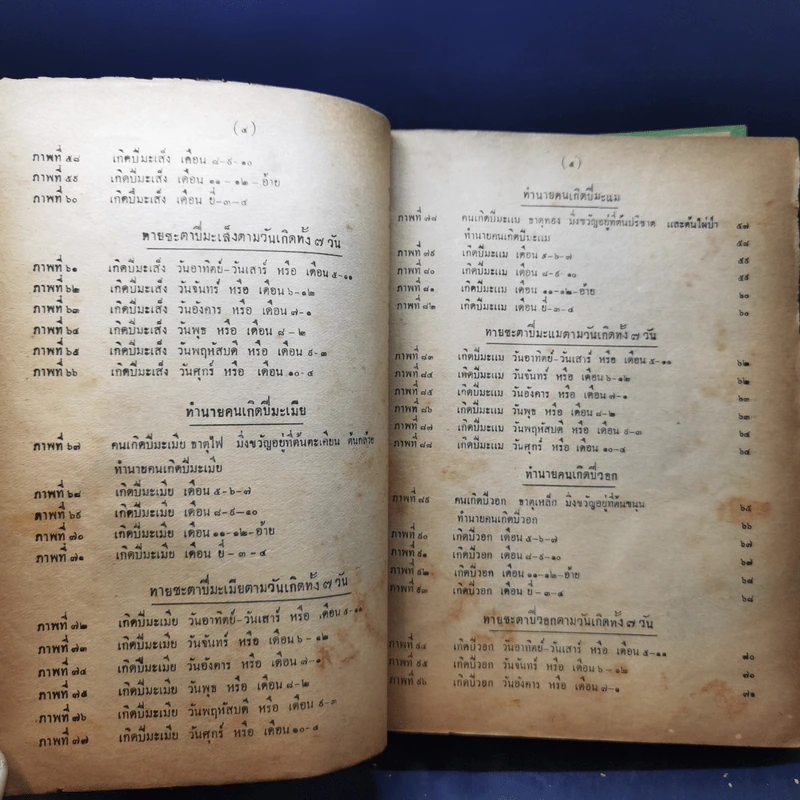 (๔)
ภาพที่ ๕๘ เกิดปีมะเส็ง เดือน ๘-๙-๑๐
ภาพที่ ๕๙ เกิดปีมะเส็ง เดือน ๑๑-๑๒-อ้าย
ภาพที่ ๖๐ เกิดปีมะเส็ง เดือน ยี่-๓-๔
ทายชะตาปีมะเส็งตามวันเกิดทั้ง ๗ วัน
ภาพที่ ๖๑ เกิดปีมะเส็ง วันอาทิตย์-วันเสาร์ หรือ เดือน ๕-๑๑
ภาพที่ ๖๒ เกิดปีมะเส็ง วันจันทร์ หรือ เดือน ๖-๑๒
ภาพที่ ๖๓ เกิดปีมะเส็ง วันอังคาร หรือ เดือน ๗-๑
ภาพที่ ๖๔ เกิดปีมะเส็ง วันพุธ หรือ เดือน ๘-๒
ภาพที่ ๖๕ เกิดปีมะเส็ง วันพฤหัสบดี หรือ เดือน ๙-๓
ภาพที่ ๖๖ เกิดปีมะเส็ง วันศุกร์ หรือ เดือน ๑๐-๔
ทำนายคนเกิดปีมะเมีย
ภาพที่ ๖๗ คนเกิดปีมะเมีย ธาตุไฟ มิ่งขวัญอยู่ที่ต้นตะเคียน ต้นกล้วย
ทำนายคนเกิดปีมะเมีย
ภาพที่ ๖๘ เกิดปีมะเมีย เดือน ๕-๖-๗
ภาพที่ ๖๙ เกิดปีมะเมีย เดือน ๘-๙-๑๐
ภาพที่ ๗๐ เกิดปีมะเมีย เดือน ๑๑-๑๒-อ้าย
ภาพที่ ๗๑ เกิดปีมะเมีย เดือน ยี่-๓-๔
ทายชะตาปีมะเมียตามวันเกิดทั้ง ๗ วัน
ภาพที่ ๗๒ เกิดปีมะเมีย วันอาทิตย์-วันเสาร์ หรือ เดือน ๕-๑๑
ภาพที่ ๗๓ เกิดปีมะเมีย วันจันทร์ หรือ เดือน ๖-๑๒
ภาพที่ ๗๔ เกิดปีมะเมีย วันอังคาร หรือ เดือน ๗-๑
ภาพที่ ๗๕ เกิดปีมะเมีย วันพุธ หรือ เดือน ๘-๒
ภาพที่ ๗๖ เกิดปีมะเมีย วันพฤหัสบดี หรือ เดือน ๙-๓
ภาพที่ ๗๗ เกิดปีมะเมีย วันศุกร์ หรือ เดือน ๑๐-๔
(๕)
ทำนายคนเกิดปีมะแม
ภาพที่ ๗๘ คนเกิดปีมะแม ธาตุทอง มิ่งขวัญอยู่ที่ต้นปริชาต และต้นไผ่ป่า ๕๗
ทำนายคนเกิดปีมะแม ๕๘
ภาพที่ ๗๙ เกิดปีมะแม เดือน ๕-๖-๗ ๕๙
ภาพที่ ๘๐ เกิดปีมะแม เดือน ๘-๙-๑๐ ๕๙
ภาพที่ ๘๑ เกิดปีมะแม เดือน ๑๑-๑๒-อ้าย ๖๐
ภาพที่ ๘๒ เกิดปีมะแม เดือน ยี่-๓-๔ ๖๐
ทายชะตาปีมะแมตามวันเกิดทั้ง ๗ วัน
ภาพที่ ๘๓ เกิดปีมะแม วันอาทิตย์-วันเสาร์ หรือ เดือน ๕-๑๑ ๖๒
ภาพที่ ๘๔ เกิดปีมะแม วันจันทร์ หรือ เดือน ๖-๑๒ ๖๒
ภาพที่ ๘๕ เกิดปีมะแม วันอังคาร หรือ เดือน ๗-๑ ๖๓
ภาพที่ ๘๖ เกิดปีมะแม วันพุธ หรือ เดือน ๘-๒ ๖๓
ภาพที่ ๘๗ เกิดปีมะแม วันพฤหัสบดี หรือ เดือน ๙-๓ ๖๔
ภาพที่ ๘๘ เกิดปีมะแม วันศุกร์ หรือ เดือน ๑๐-๔ ๖๔
ทำนายคนเกิดปีวอก
ภาพที่ ๘๙ คนเกิดปีวอก ธาตุเหล็ก มิ่งขวัญอยู่ที่ต้นขนุน ๖๕
ทำนายคนเกิดปีวอก ๖๖
ภาพที่ ๙๐ เกิดปีวอก เดือน ๕-๖-๗ ๖๗
ภาพที่ ๙๑ เกิดปีวอก เดือน ๘-๙-๑๐ ๖๗
ภาพที่ ๙๒ เกิดปีวอก เดือน ๑๑-๑๒-อ้าย ๖๘
ภาพที่ ๙๓ เกิดปีวอก เดือน ยี่-๓-๔ ๖๘
ทายชะตาปีวอกตามวันเกิดทั้ง ๗ วัน
ภาพที่ ๙๔ เกิดปีวอก วันอาทิตย์-วันเสาร์ หรือ เดือน ๕-๑๑ ๗๐
ภาพที่ ๙๕ เกิดปีวอก วันจันทร์ หรือ เดือน ๖-๑๒ ๗๐
ภาพที่ ๙๖ เกิดปีวอก วันอังคาร หรือ เดือน ๗-๑ ๗๑